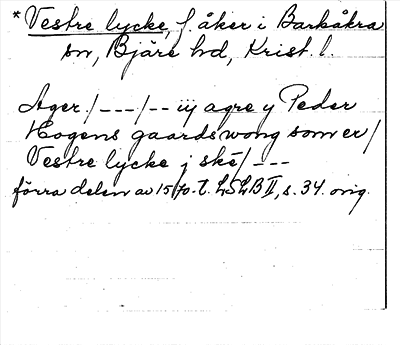 *Vestre lycke, f. åker i Barkåkra
sn, Bjäre hd, Krist. l.
Ager/---/-- iij agre y Peder
Hogens gaards wong som er/
Vestre lycke j ske/---
förra delen av 1570-t. LSLB II, s. 34. orig.